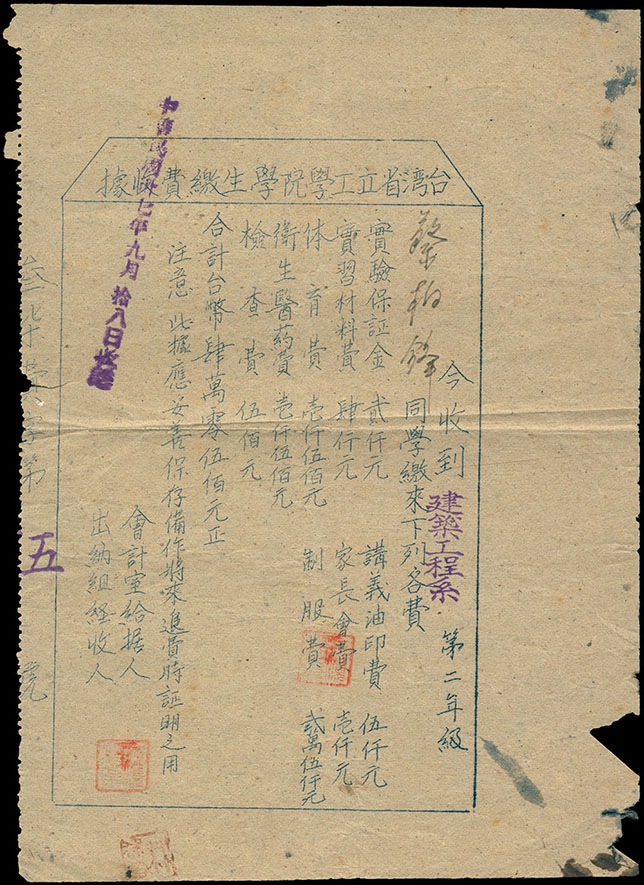 台湾省立工學院學生繳費收據
今收到建築工程系 第二年級
蔡柏鋒同學繳來下列各費
實驗保証金 貳仟元 講義油印費 伍仟元
實習材料費 肆仟元 家長會費 壱仟元
体育費 壱仟伍佰元 制服費 弍萬伍仟元
衛生醫药費 壱仟伍佰元
檢查費 伍佰元
合計台幣肆萬零伍佰元正
注意 此據應妥善保存備作將來退費時証明之用
會計室給据人
出納組経收人
中華民國卅七年九月拾八日
字第 五 號